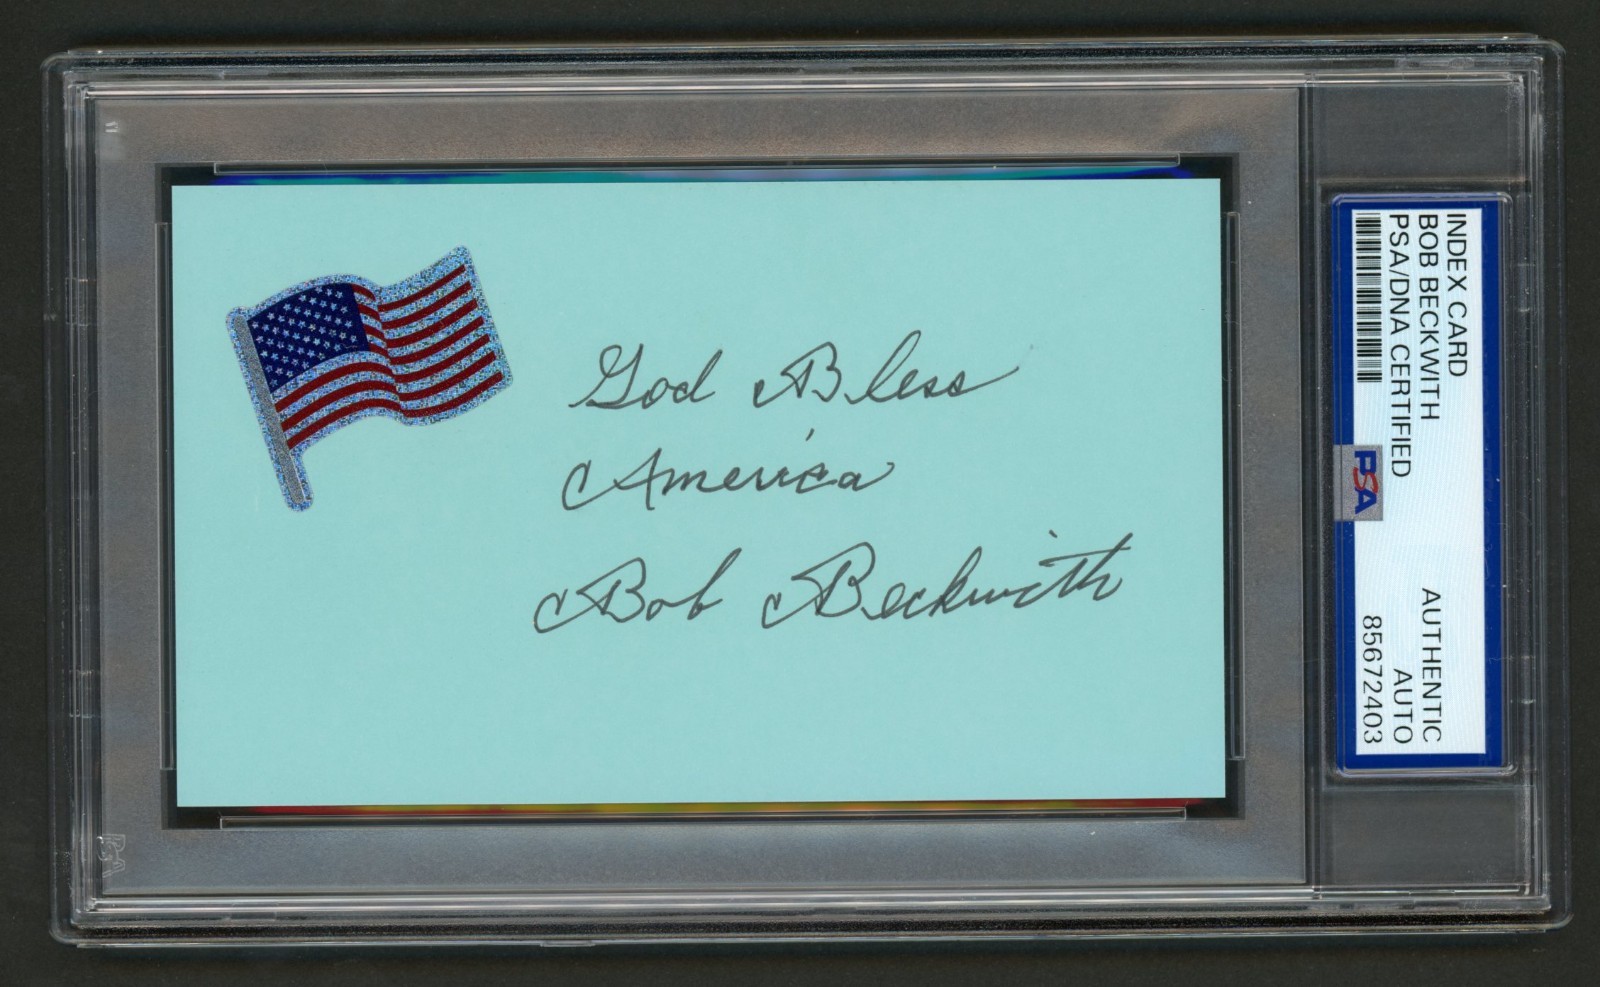 God Bless
America
Bob Beckwith
INDEX CARD
BOB BECKWITH
PSA/DNA CERTIFIED
AUTHENTIC
AUTO
85672403
PSA
PSA